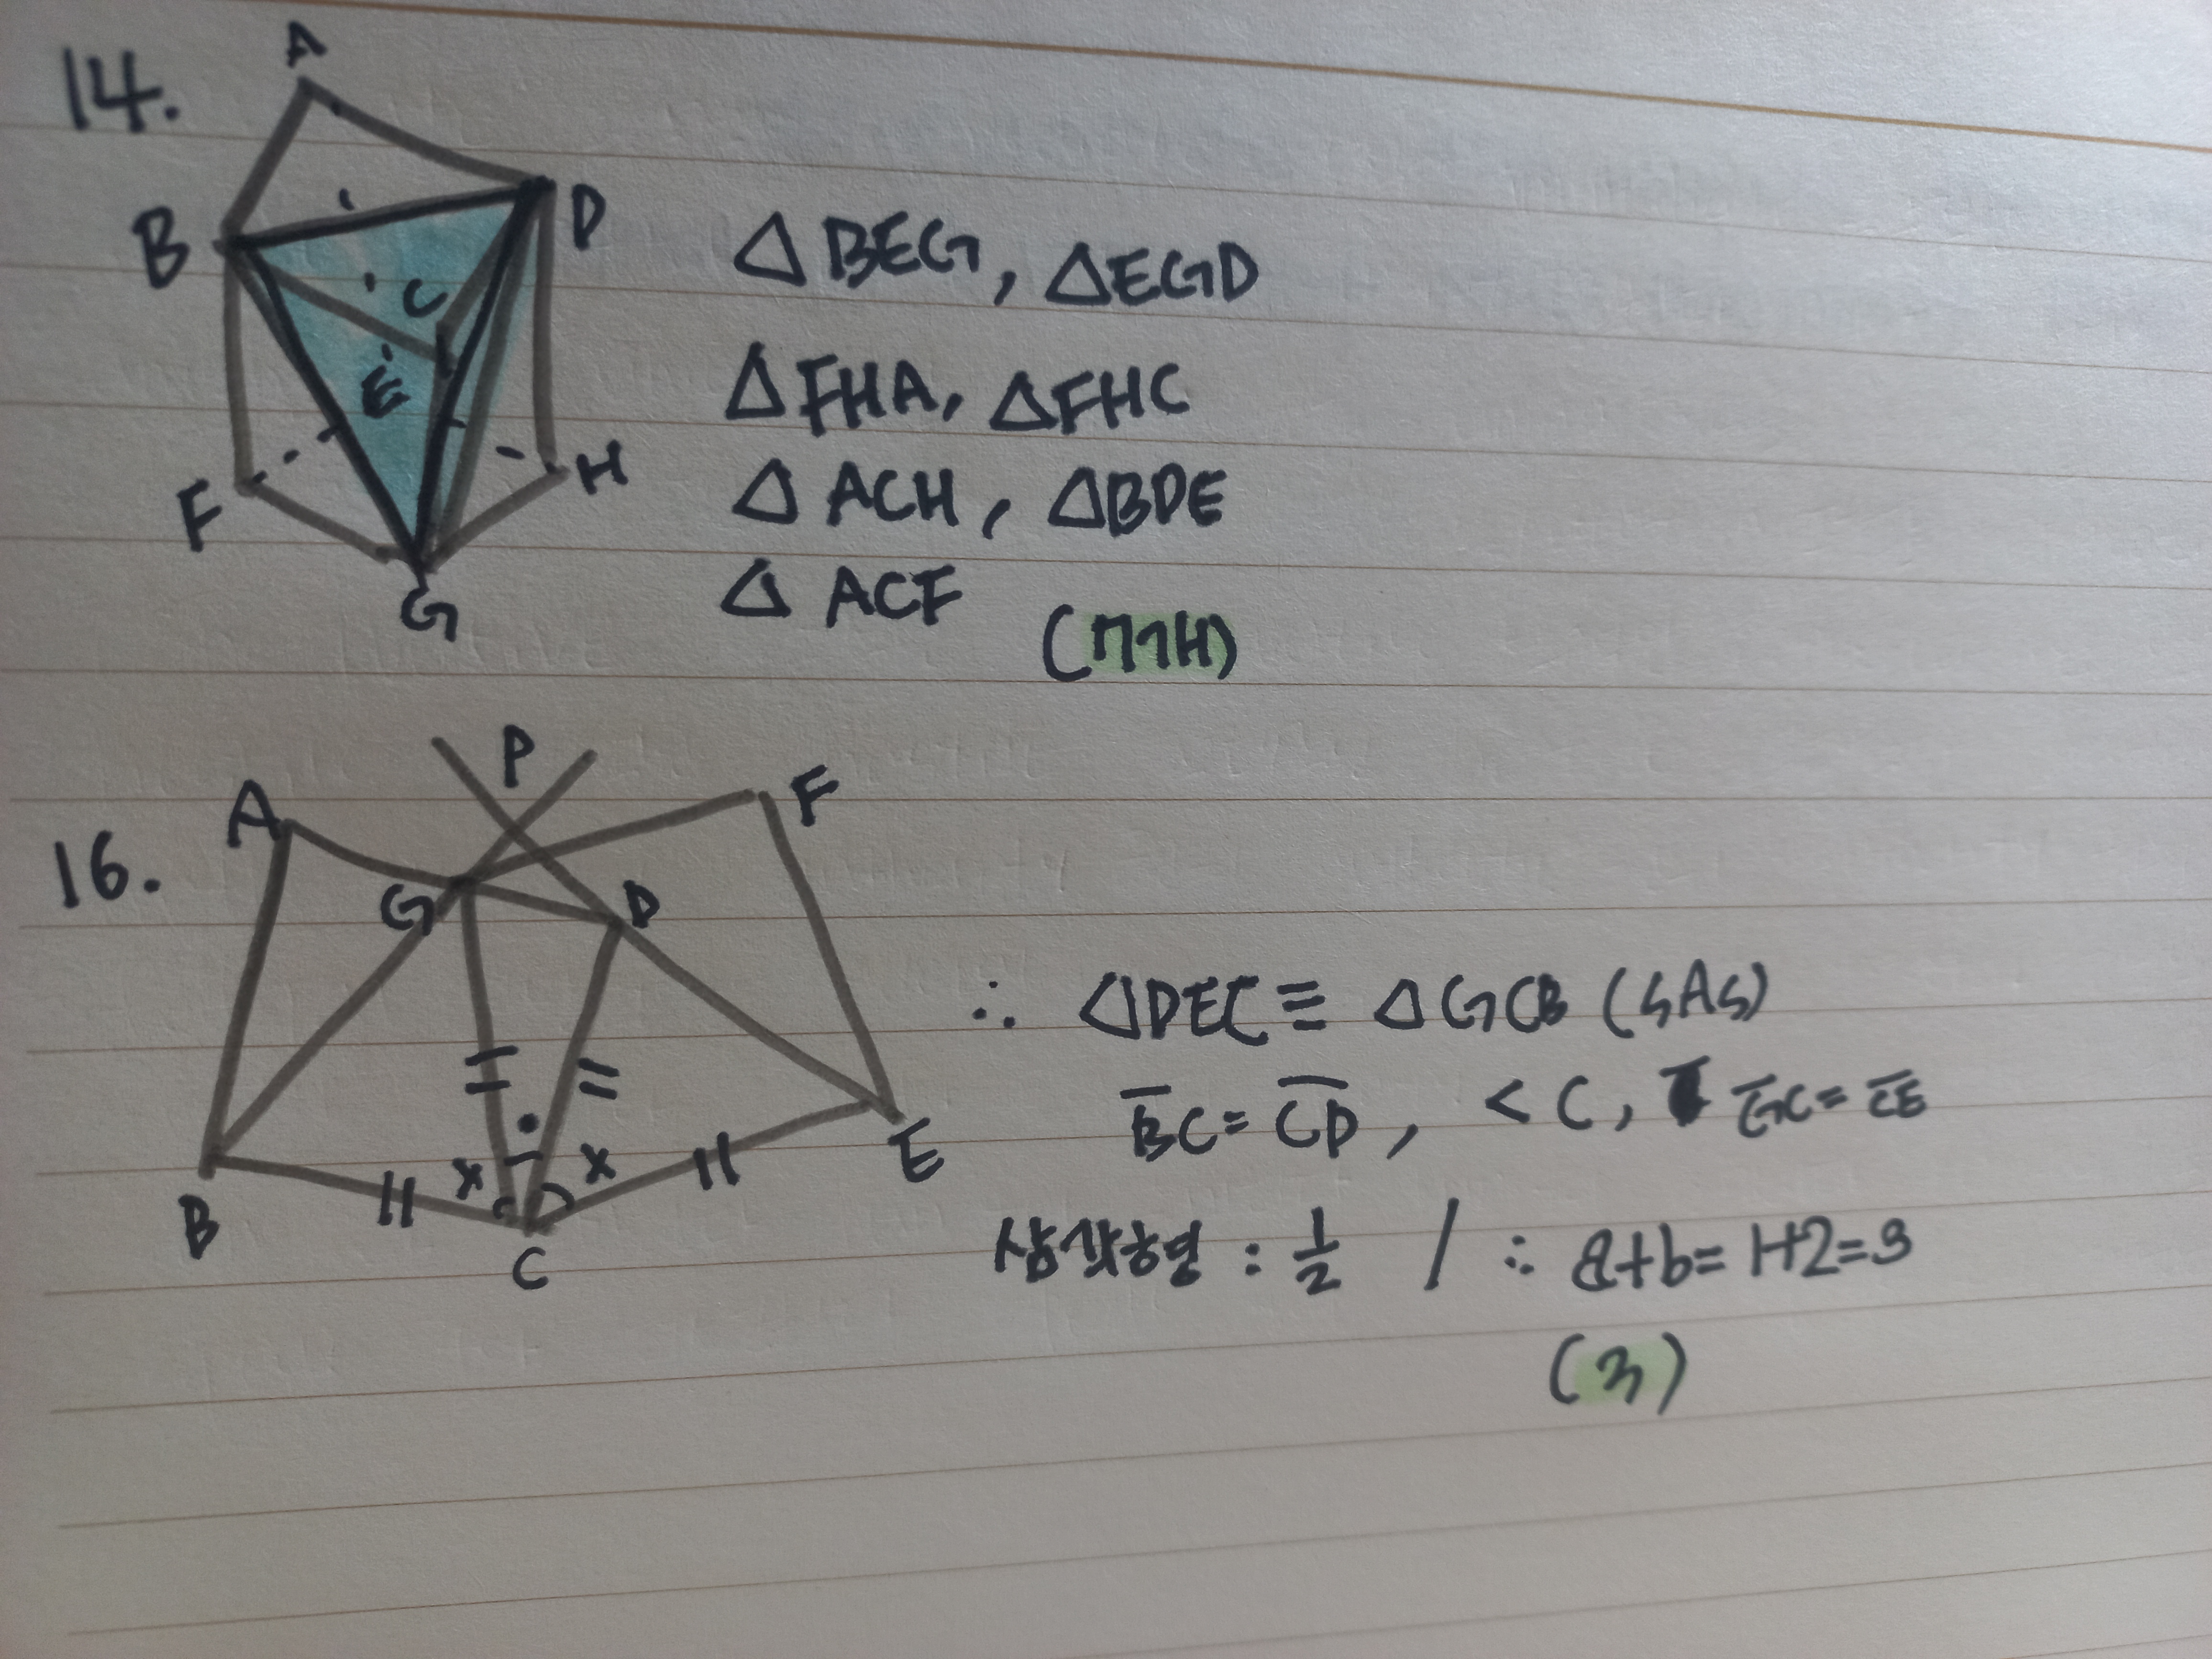 14.
A
B
D
C
E
F
H
G
△BEG, △EGD
△FHA, △FHC
△ACH, △BDE
△ACF
(7개)
16.
P
A
F
G
D
B
C
E
x • x
∴ △DEC ≡ △GCB (SAS)
B̅C̅ = C̅D̅, <C, G̅C̅ = C̅E̅
삼각형 : 1/2 / ∴ a+b = 1+2 = 3
(3)